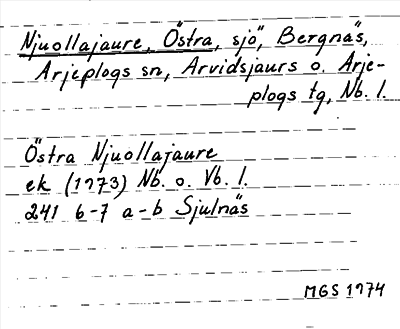 Njuollajaure, Östra, sjö, Bergnäs,
Arjeplogs sn, Arvidsjaurs o. Arje-
plogs tg, Nb. l.
Östra Njuollajaure
ek (1973) Nb. o. Vb. l.
241 6-7 a-b Sjulnäs
MGS 1974